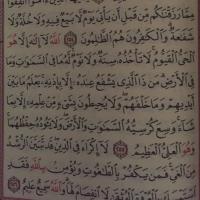 مِمَّا رَزَقْنَٰكُم مِّن قَبْلِ أَن يَأْتِىَ يَوْمٌ لَّا بَيْعٌ فِيهِ وَلَا خُلَّةٌ وَلَا
شَفَٰعَةٌ وَٱلْكَٰفِرُونَ هُمُ ٱلظَّٰلِمُونَ ٢٥٤ ٱللَّهُ لَآ إِلَٰهَ إِلَّا هُوَ
ٱلْحَىُّ ٱلْقَيُّومُ لَا تَأْخُذُهُۥ سِنَةٌ وَلَا نَوْمٌ لَّهُۥ مَا فِى ٱلسَّمَٰوَٰتِ وَمَا
فِى ٱلْأَرْضِ مَن ذَا ٱلَّذِى يَشْفَعُ عِندَهُۥٓ إِلَّا بِإِذْنِهِۦ يَعْلَمُ مَا بَيْنَ
أَيْدِيهِمْ وَمَا خَلْفَهُمْ وَلَا يُحِيطُونَ بِشَىْءٍ مِّنْ عِلْمِهِۦٓ إِلَّا بِمَا
شَآءَ وَسِعَ كُرْسِيُّهُ ٱلسَّمَٰوَٰتِ وَٱلْأَرْضَ وَلَا يَـُٔودُهُۥ حِفْظُهُمَا
وَهُوَ ٱلْعَلِىُّ ٱلْعَظِيمُ ٢٥٥ لَآ إِكْرَاهَ فِى ٱلدِّينِ قَد تَّبَيَّنَ ٱلرُّشْدُ
مِنَ ٱلْغَىِّ فَمَن يَكْفُرْ بِٱلطَّٰغُوتِ وَيُؤْمِنۢ بِٱللَّهِ فَقَدِ
ٱسْتَمْسَكَ بِٱلْعُرْوَةِ ٱلْوُثْقَىٰ لَا ٱنفِصَامَ لَهَا وَٱللَّهُ سَمِيعٌ عَلِيمٌ